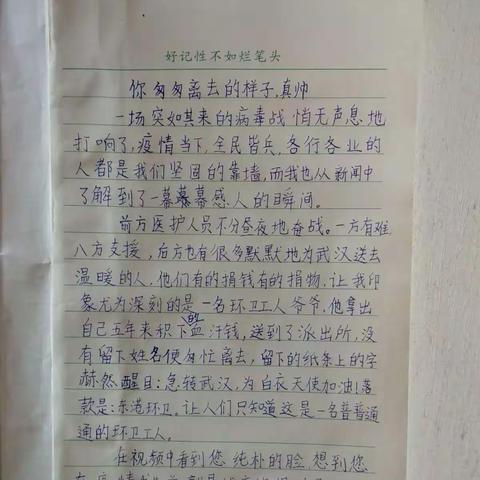 好记性不如烂笔头
你匆匆离去的样子,真帅
一场突如其来的病毒战悄无声息地
打响了,疫情当下,全民皆兵,各行各业的
人都是我们坚固的靠墙,而我也从新闻中
了解到了一幕幕感人的瞬间。
前方医护人员不分昼夜地奋战。一方有难
八方支援,后方也有很多默默地为武汉送去
温暖的人,他们有的捐钱有的捐物,让我印
象尤为深刻的是一名环卫工人爷爷,他拿出
自己五年来积下的血汗钱,送到了派出所,没
有留下姓名便匆忙离去,留下的纸条上的字
赫然醒目:急转武汉,为白衣天使加油!落
款是:东港环卫。让人们只知道这是一名普普通
通的环卫工人。
在视频中看到您纯朴的脸,想到您